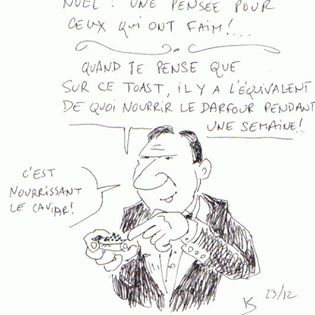 NOËL : UNE PENSÉE POUR
CEUX QUI ONT FAIM !...
QUAND JE PENSE QUE
SUR CE TOAST, IL Y A L'ÉQUIVALENT
DE QUOI NOURRIR LE DARFOUR PENDANT
UNE SEMAINE !
C'EST
NOURRISSANT
LE CAVIAR !
23/12